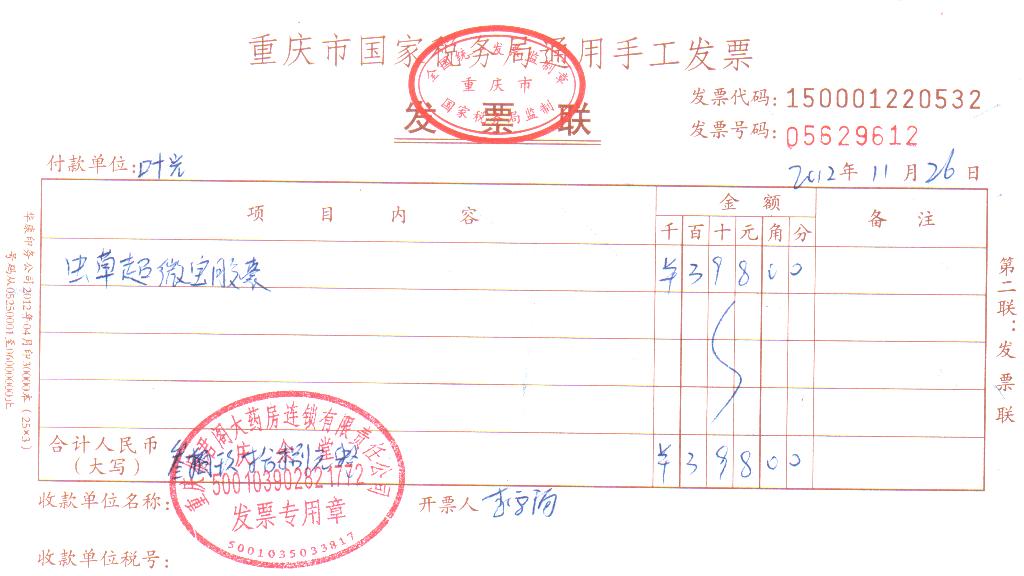 重庆市国家税务局通用手工发票
全国统一发票监制章
重庆市
国家税务局监制
发票联
发票代码:150001220532
发票号码:05629612
付款单位:叶光
2012年11月26日
项目内容
金额
备注
千百十元角分
虫草超微宝胶囊
¥39800
合计人民币
(大写)
¥39800
收款单位名称:
开票人
收款单位税号:
大药房连锁有限责任公司
500103902821772
发票专用章
5001035033817
第二联:发票联
印务公司2012年04月印30000本(25×3)
号码从05250001至06000000止